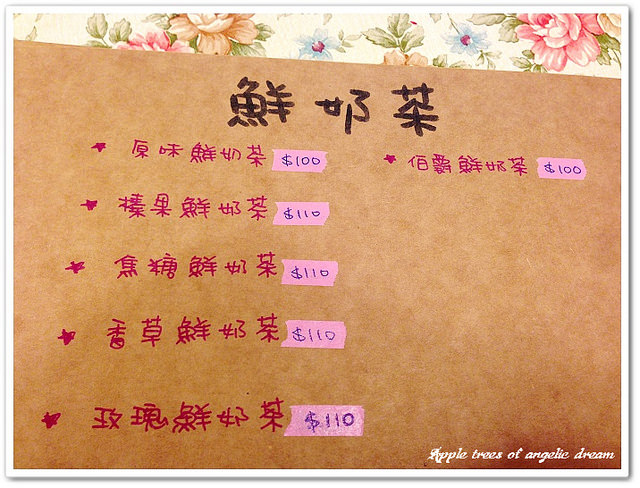 鮮奶茶
原味鮮奶茶 $100
伯爵鮮奶茶 $100
榛果鮮奶茶 $110
焦糖鮮奶茶 $110
香草鮮奶茶 $110
玫瑰鮮奶茶 $110
Apple trees of angelic dream